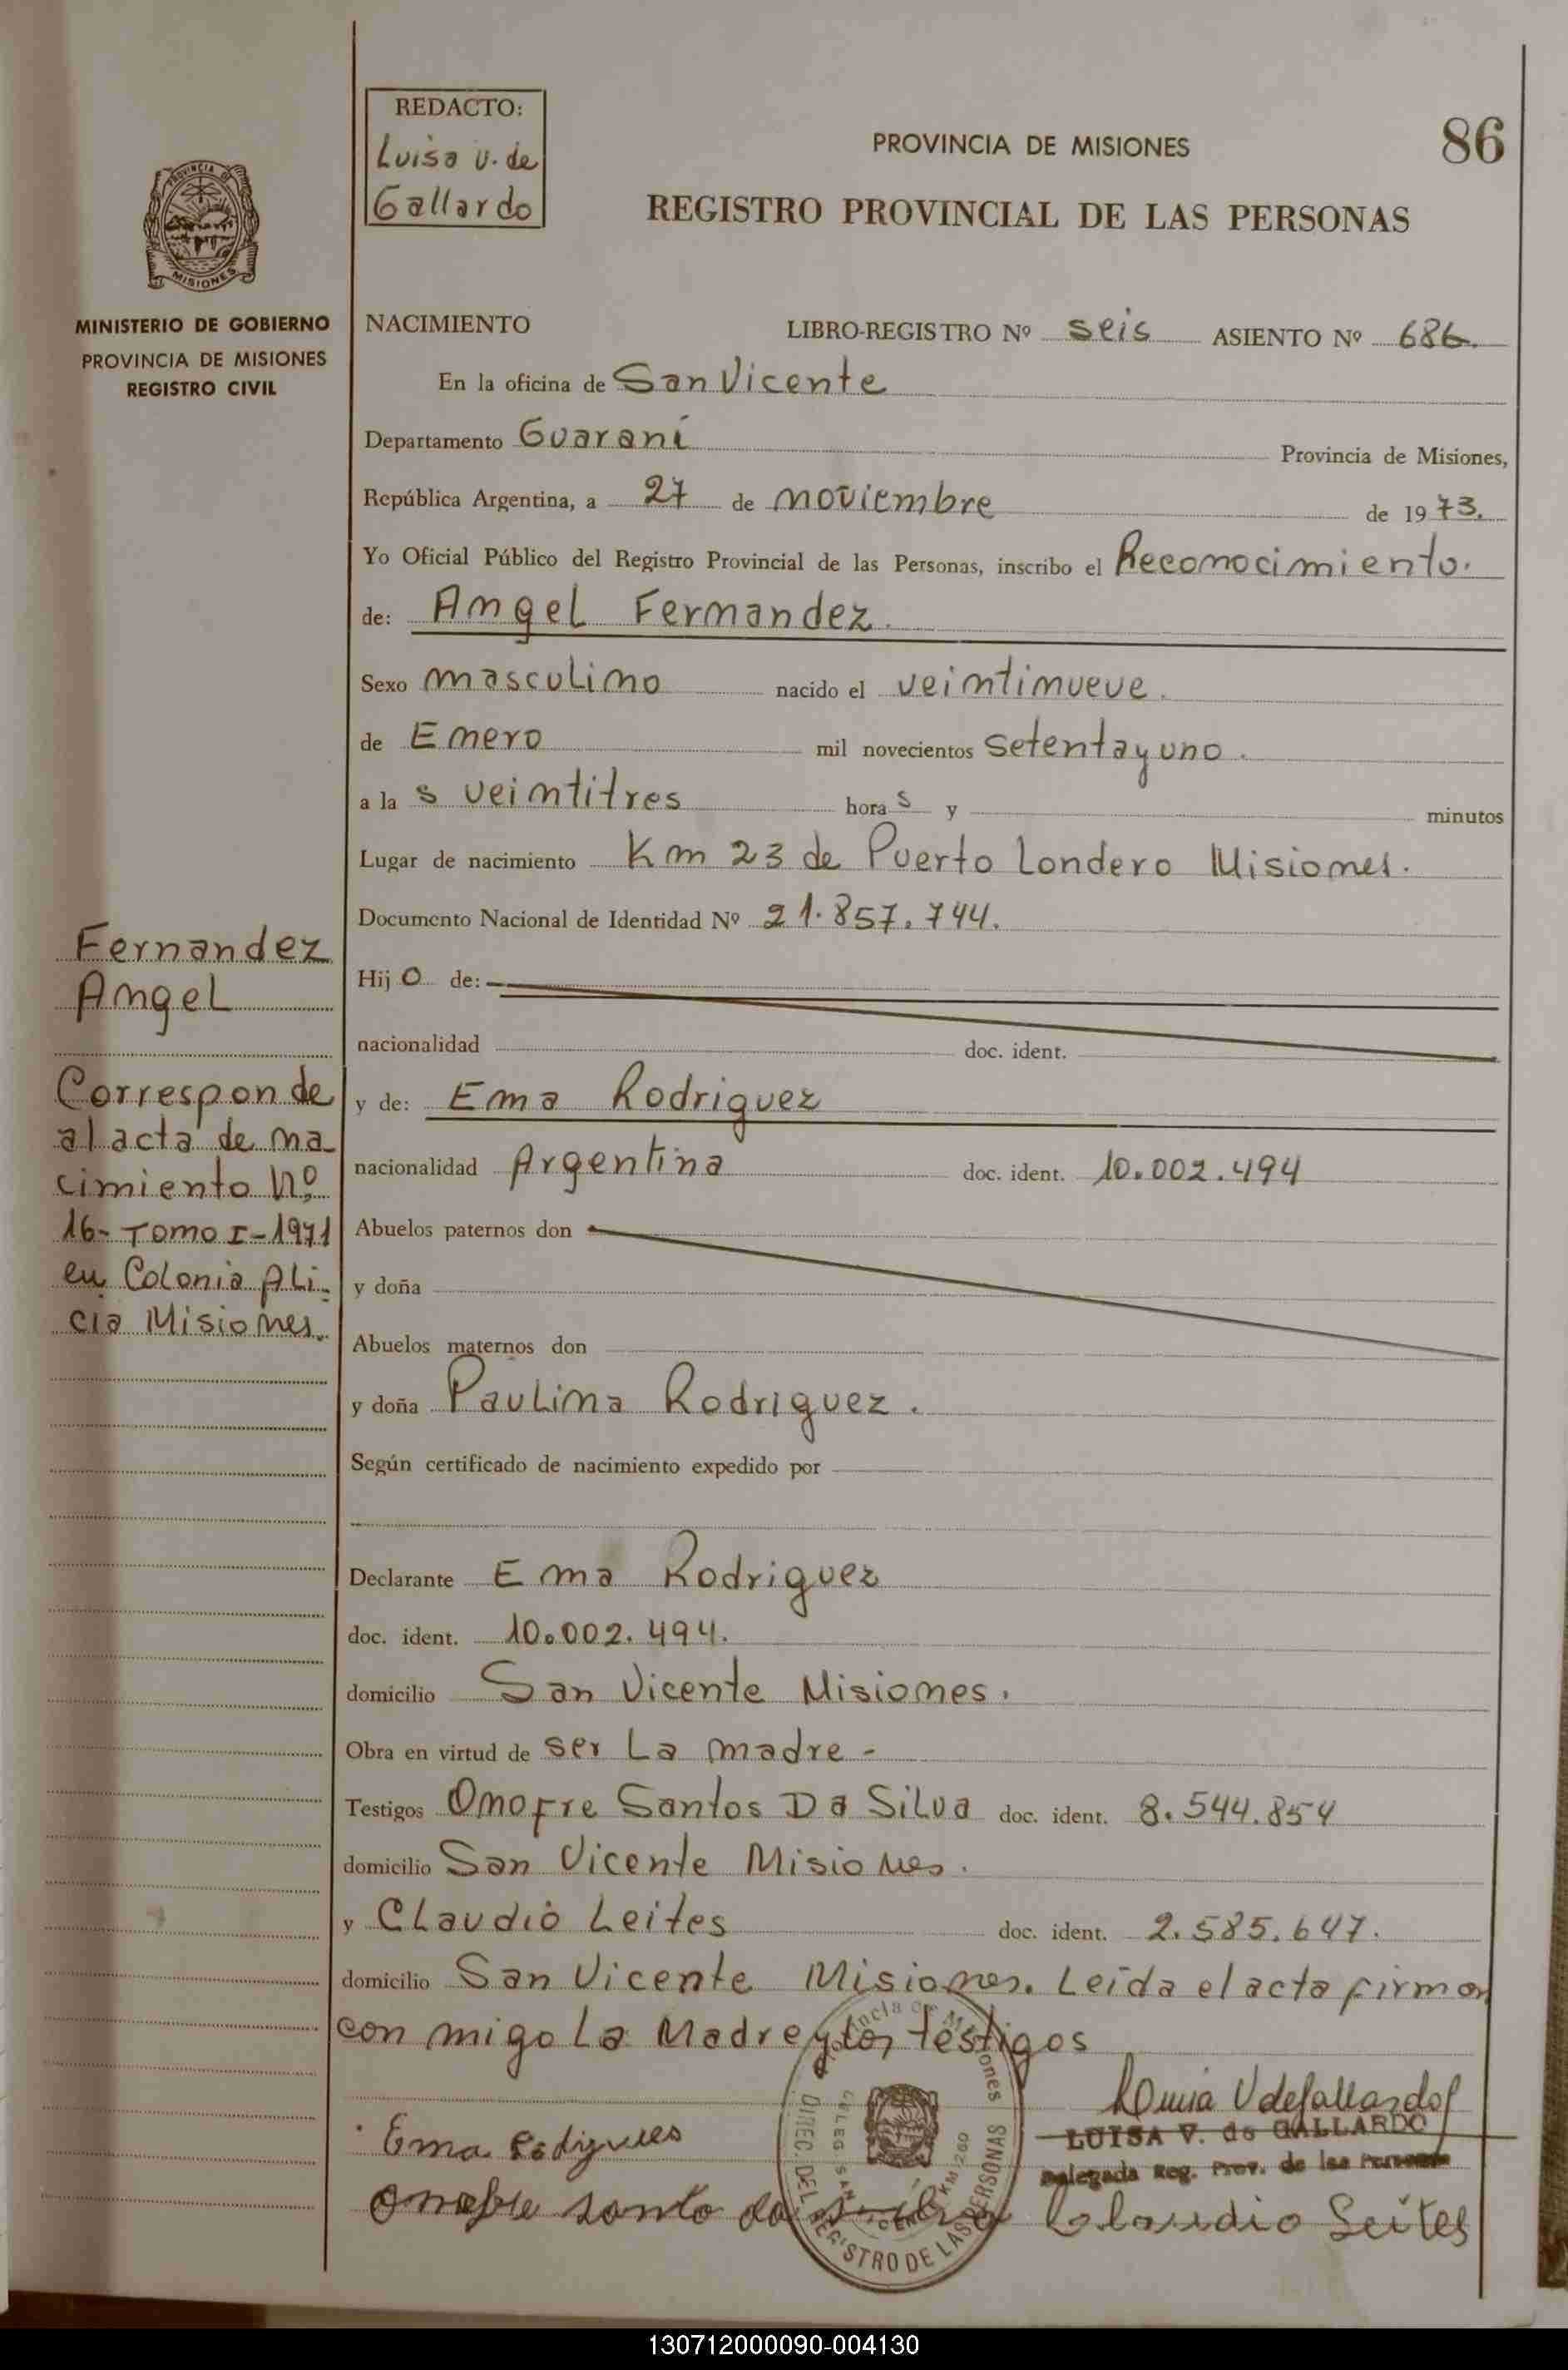 REDACTO:
Luisa v. de
Gallardo
PROVINCIA DE MISIONES
86
REGISTRO PROVINCIAL DE LAS PERSONAS
PROVINCIA DE
MISIONES
MINISTERIO DE GOBIERNO
PROVINCIA DE MISIONES
REGISTRO CIVIL
NACIMIENTO LIBRO-REGISTRO Nº seis ASIENTO Nº 686.
En la oficina de San Vicente
Departamento Guaraní Provincia de Misiones,
República Argentina, a 27 de noviembre de 1973.
Yo Oficial Público del Registro Provincial de las Personas, inscribo el Reconocimiento.
de: Angel Fernandez.
Sexo masculino nacido el veintinueve.
de Enero mil novecientos setenta y uno.
a la s veintitres hora s y minutos
Lugar de nacimiento Km 23 de Puerto Londero Misiones.
Documento Nacional de Identidad Nº 21.857.744.
Hij o de:
nacionalidad doc. ident.
y de: Ema Rodriguez
nacionalidad Argentina doc. ident. 10.002.494
Abuelos paternos don
y doña
Abuelos maternos don
y doña Paulina Rodriguez.
Según certificado de nacimiento expedido por
Declarante Ema Rodriguez
doc. ident. 10.002.494.
domicilio San Vicente Misiones.
Obra en virtud de ser La madre -
Testigos Onofre Santos Da Silva doc. ident. 8.544.854
domicilio San Vicente Misiones.
y Claudio Leites doc. ident. 2.585.647.
domicilio San Vicente Misiones. Leída el acta firman
con migo La Madre y los testigos
Fernandez
Angel
Corresponde
al acta de na
cimiento Nº
16- Tomo I-1971
en Colonia Ali-
cia Misiones.
Luisa V de Gallardo
LUISA V. de GALLARDO
Delegada Reg. Prov. de las Personas
Ema Rodigues
Onofre santo da silva
Claudio Leites
Provincia de Misiones
DIREC. DEL REGISTRO DE LAS PERSONAS
DELEG. SAN VICENTE KM 260
130712000090-004130